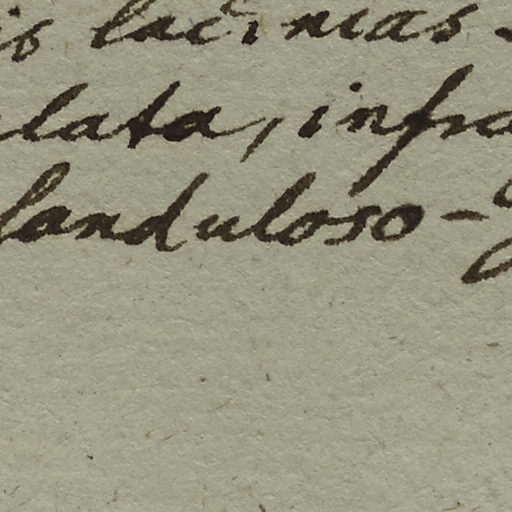 is lacinias
lata, infra
landuloso-